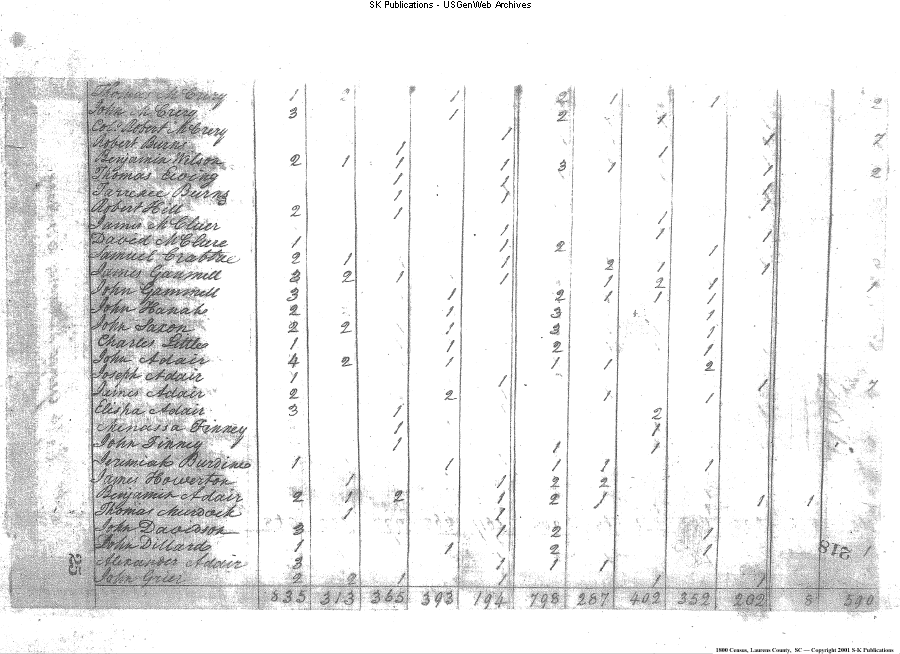 SK Publications - USGenWeb Archives
Thomas McCrery 1 2 1 2 1 1 2
John McCrery 3 1 2 1
Col. Robert McCrery 1 1 7
Robert Burns 1 1
Benjamin Wilson 2 1 1 1 3 1 1 2
Thomas Ewing 1 1 1
Terrence Burns 1 1 1
Robert Hill 2 1 1 1
James McClier 1 1 1
David McClure 1 1 2 1
Samuel Crabtree 2 1 1 2 1 1
James Gammill 3 2 1 1 1 2 1
John Gammill 3 1 2 1 1 1 1
John Hanah 2 1 3 1
John Saxon 2 2 1 3 1
Charles Little 1 1 2 1
John Adair 4 2 1 1 1 2
Joseph Adair 1 1 1 7
James Adair 2 2 1 1
Elisha Adair 3 1 2
Finney 1 1
John Finney 1 1 1
Jeremiah Burdine 1 1 1 1 1
James Howerton 1 1 2 2
Benjamin Adair 2 1 2 1 2 1 1 1
Thomas Murdock 1 1
John Davidson 3 1 2 1
John Dillard 1 1 2 1 1
Alexander Adair 3 1 1 1
John Grier 2 2 1 1 1 1
218
535 313 365 393 194 798 287 402 352 202 8 590
1800 Census, Laurens County, SC — Copyright 2001 S-K Publications